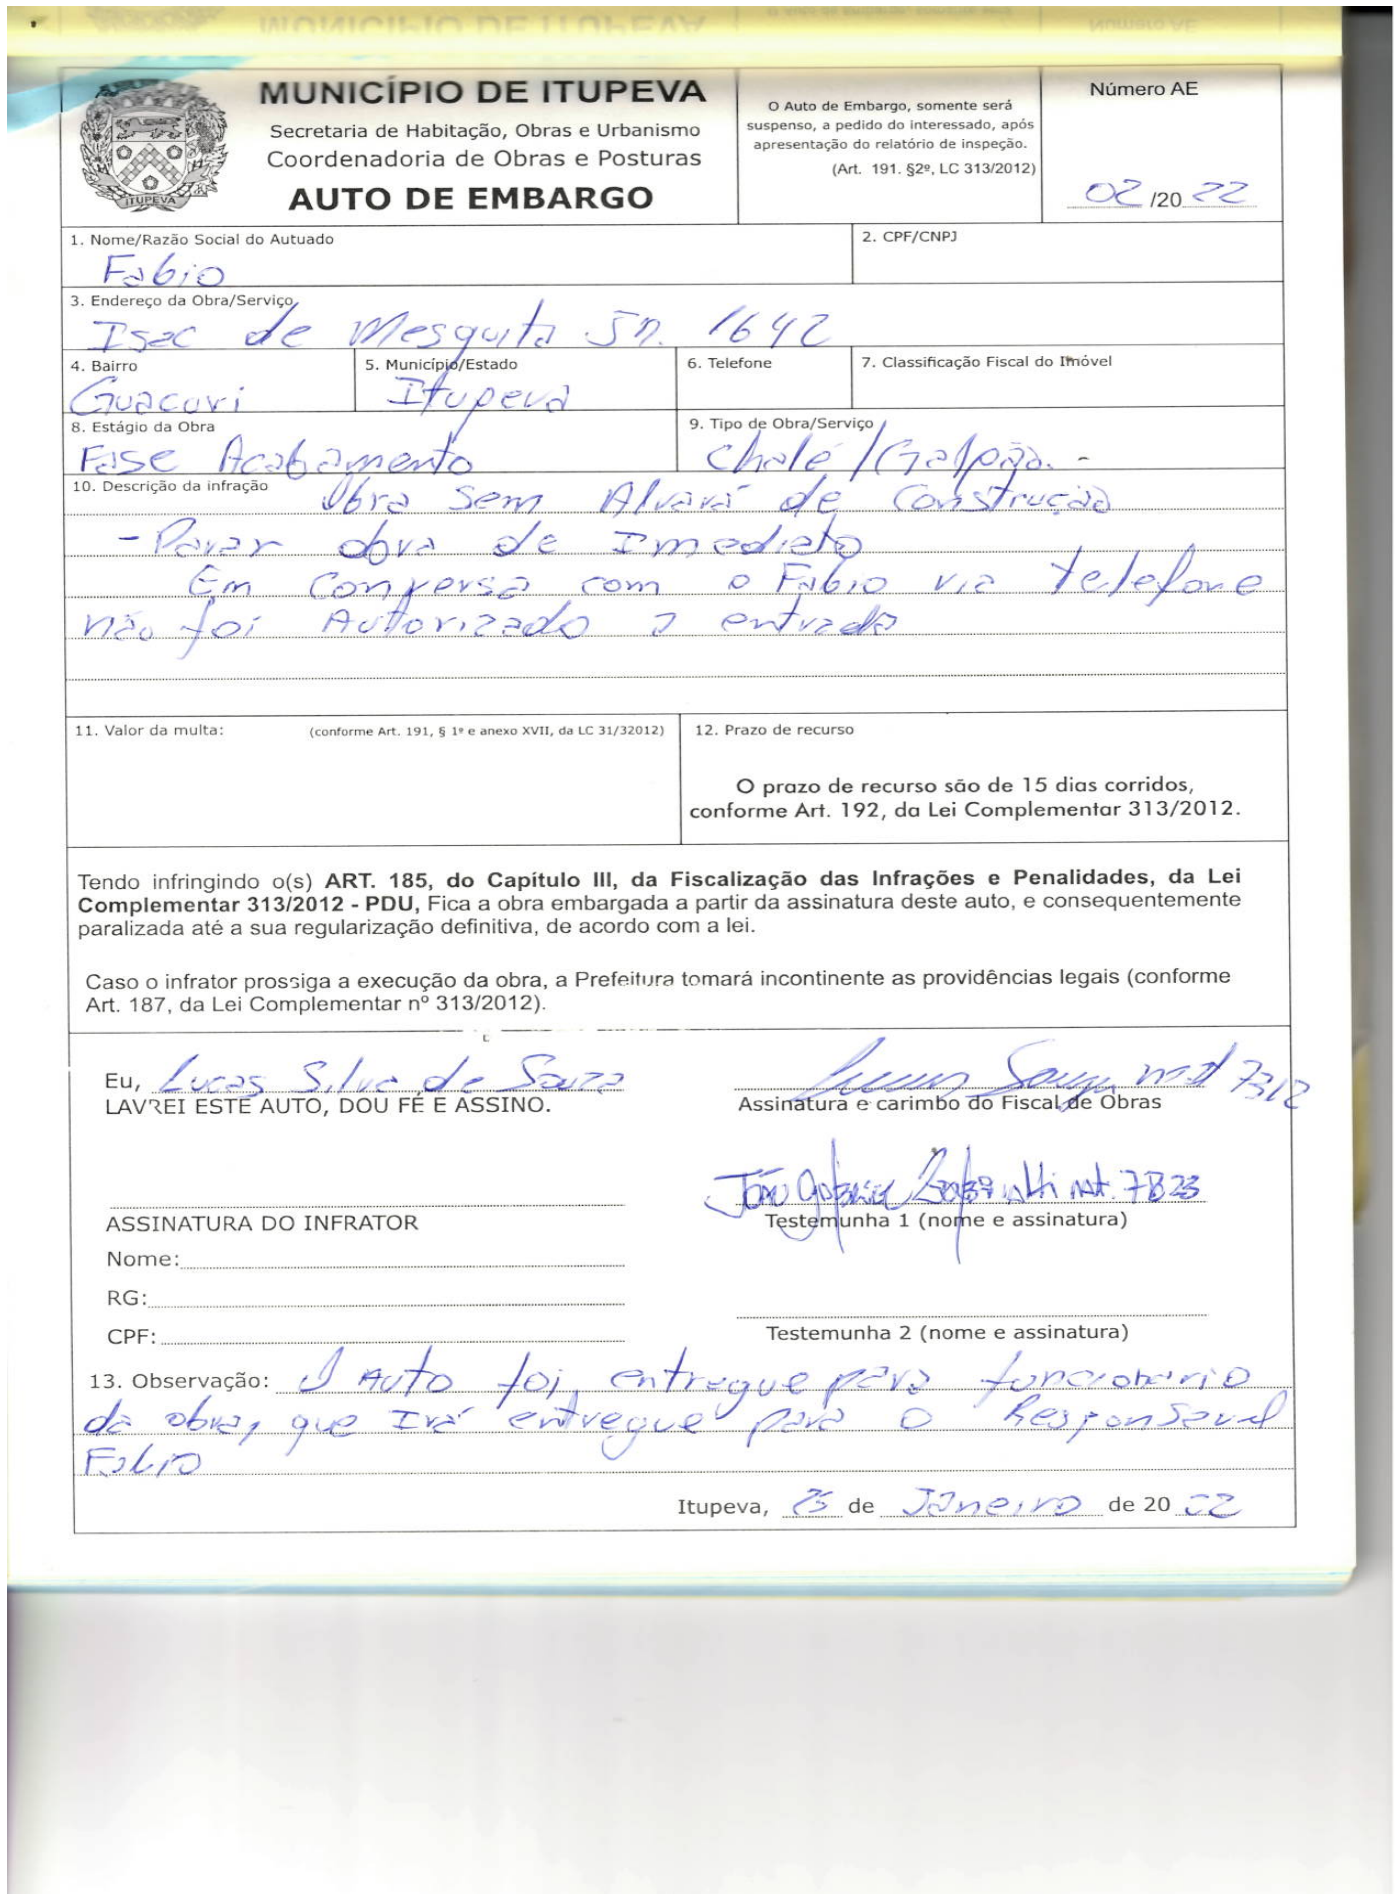 MUNICÍPIO DE ITUPEVA
Secretaria de Habitação, Obras e Urbanismo
Coordenadoria de Obras e Posturas
AUTO DE EMBARGO
ITUPEVA
O Auto de Embargo, somente será
suspenso, a pedido do interessado, após
apresentação do relatório de inspeção.
(Art. 191. §2º, LC 313/2012)
Número AE
02 /20 22
1. Nome/Razão Social do Autuado
Fabio
2. CPF/CNPJ
3. Endereço da Obra/Serviço
Isac de Mesquita Sn. 1642
4. Bairro
Guacuri
5. Município/Estado
Itupeva
6. Telefone
7. Classificação Fiscal do Imóvel
8. Estágio da Obra
Fase Acabamento
9. Tipo de Obra/Serviço
Chalé/Galpão. -
10. Descrição da infração
Obra Sem Alvará de Construção
- Parar obra de Imediato
Em Conversa com o Fabio via telefone
não foi Autorizado a entrada
11. Valor da multa: (conforme Art. 191, § 1º e anexo XVII, da LC 31/32012)
12. Prazo de recurso
O prazo de recurso são de 15 dias corridos,
conforme Art. 192, da Lei Complementar 313/2012.
Tendo infringindo o(s) ART. 185, do Capítulo III, da Fiscalização das Infrações e Penalidades, da Lei
Complementar 313/2012 - PDU, Fica a obra embargada a partir da assinatura deste auto, e consequentemente
paralizada até a sua regularização definitiva, de acordo com a lei.
Caso o infrator prossiga a execução da obra, a Prefeitura tomará incontinente as providências legais (conforme
Art. 187, da Lei Complementar nº 313/2012).
Eu, Lucas Silva de Souza
LAVREI ESTE AUTO, DOU FÉ E ASSINO.
Souza mat 7312
Assinatura e carimbo do Fiscal de Obras
João Gabriel mat. 7823
Testemunha 1 (nome e assinatura)
ASSINATURA DO INFRATOR
Nome:
RG:
CPF:
Testemunha 2 (nome e assinatura)
13. Observação: O Auto foi, entregue para funcionario
da obra, que Irá entregue para o Responsavel
Fabio
Itupeva, 25 de Janeiro de 20 22